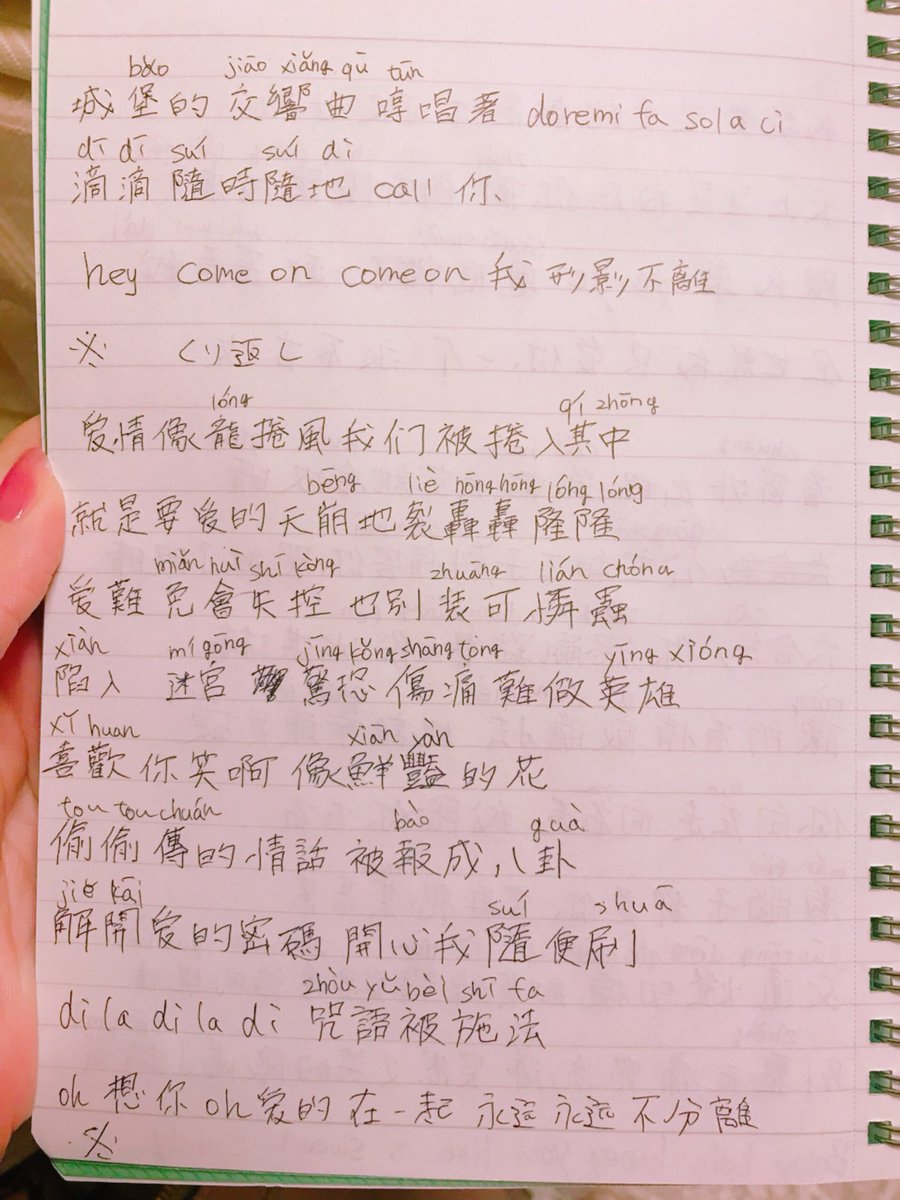 bǎo jiāo xiǎng qǔ tūn
城堡的交響曲哼唱著 doremi fa sol a ci
dī dī suí suí dì
滴滴隨時隨地 call 你、
hey come on come on 我形影不離
※ くり返し
lóng qí zhōng
爱情像龍捲風我们被捲入其中
bēng liè hōng hōng lóng lóng
就是要爱的天崩地裂轟轟隆隆
miǎn huì shī kòng zhuāng lián chóng
爱難免會失控也別装可憐蟲
xiàn mí gōng jīng kǒng shāng tòng yīng xióng
陷入 迷宮 驚恐傷痛難做英雄
xǐ huan xiān yàn
喜歡你笑啊像鮮豔的花
tou tou chuán bào guà
偷偷傳的情話被報成八卦
jiě kāi suí shuā
解開爱的密碼開心我隨便刷
zhòu yǔ bèi shī fa
di la di la di 咒語被施法
oh 想你 oh 爱的在一起 永遠永遠不分離
※